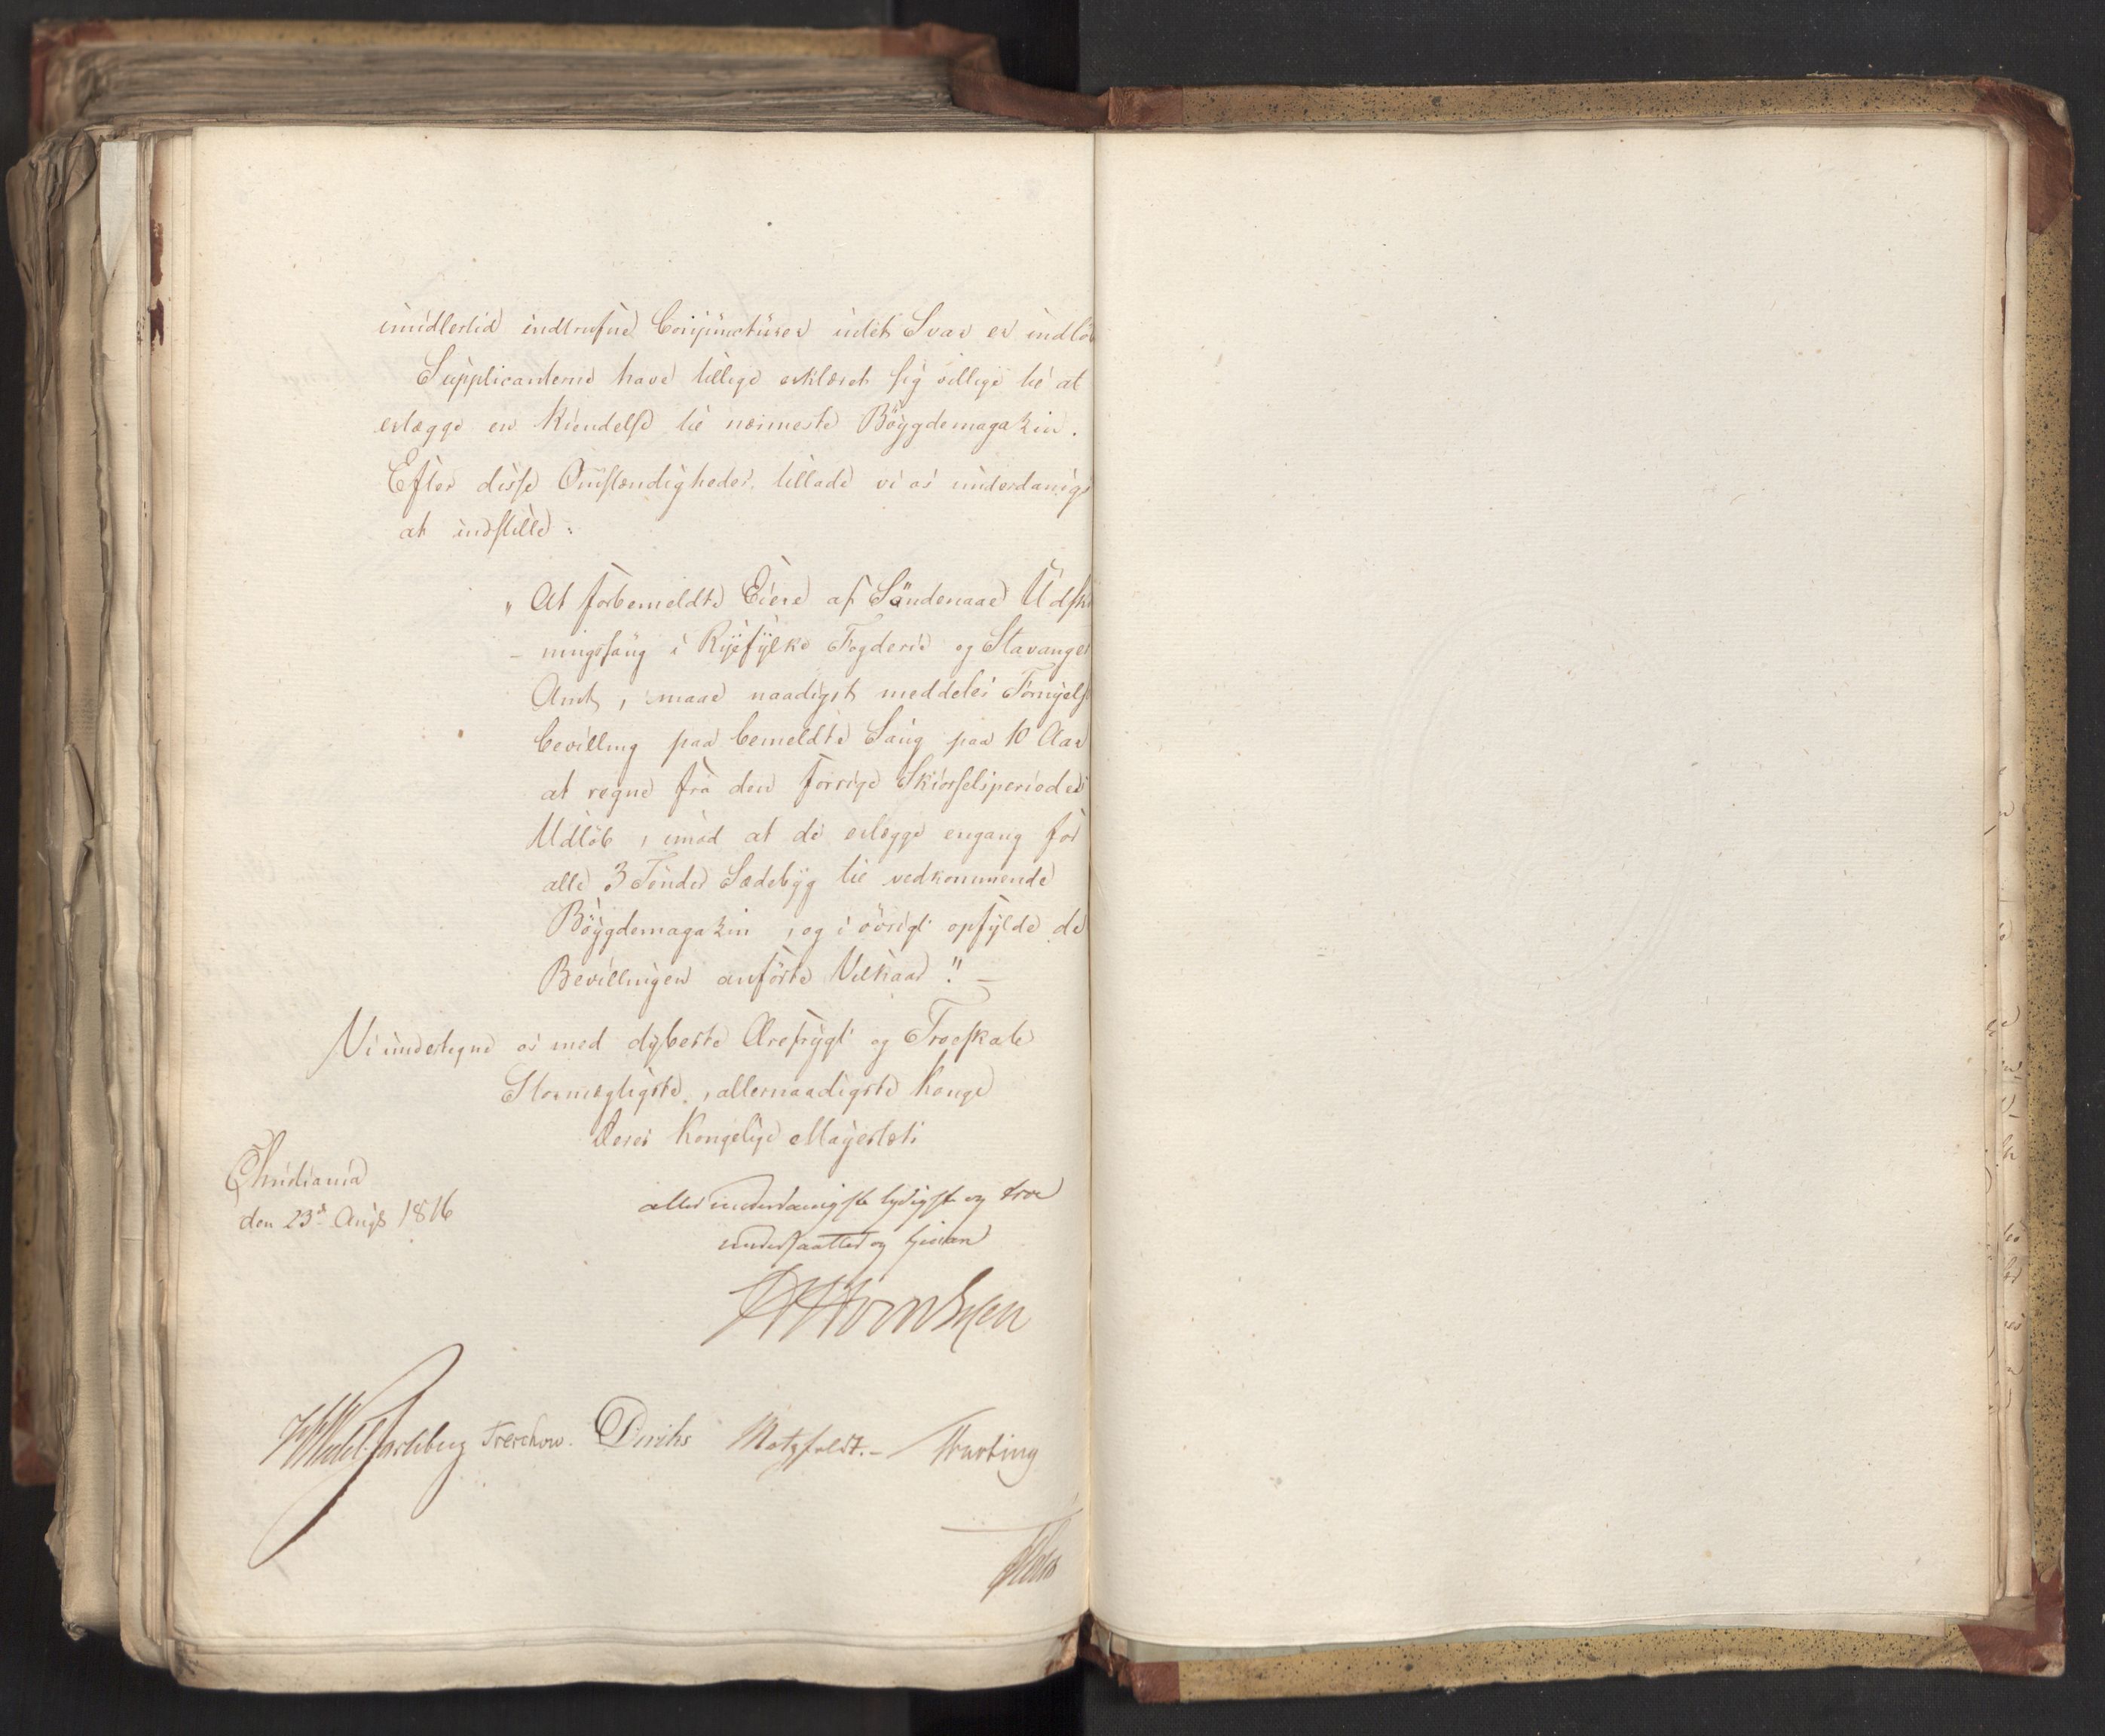 imidlertid indtrufne Conjuncturer intet Svar er indlöb
Supplicanterne have tillige erklæret sig villige til at
erlægge en Kiendelse til nærmeste Böygdemagazin.
Efter disse Omstændigheder, tillade vi os underdanigst
at indstille:
„At forbemeldte Eiere af Söndenaae Udski
- ningssaug i Ryefylke Fogderie og Stavanger
Amt, maae naadigst meddeles Fornyelse
bevilling paa bemeldte Saug paa 10 Aar
at regne fra den forrige Skiørselsperiodes
Udløb, imod at de erlægge engang for
alle 3 Tønder Sædebyg til vedkommende
Böygdemagazin, og i övrigt opfylde de
Bevillingen anførte Vilkaar." -
Vi undertegne os med dybeste Ærefrygt og Troeskab
Stormægtigste, allernaadigste Konge
Deres Kongelige Mayestæts
Christiania
den 23d Augs 1816
allerunderdanigste lydigste og troe
undersaatter og tjenere
Hornkjell
HWedel Jarlsberg Treschow. Diriks Motzfeldt. - Krafting